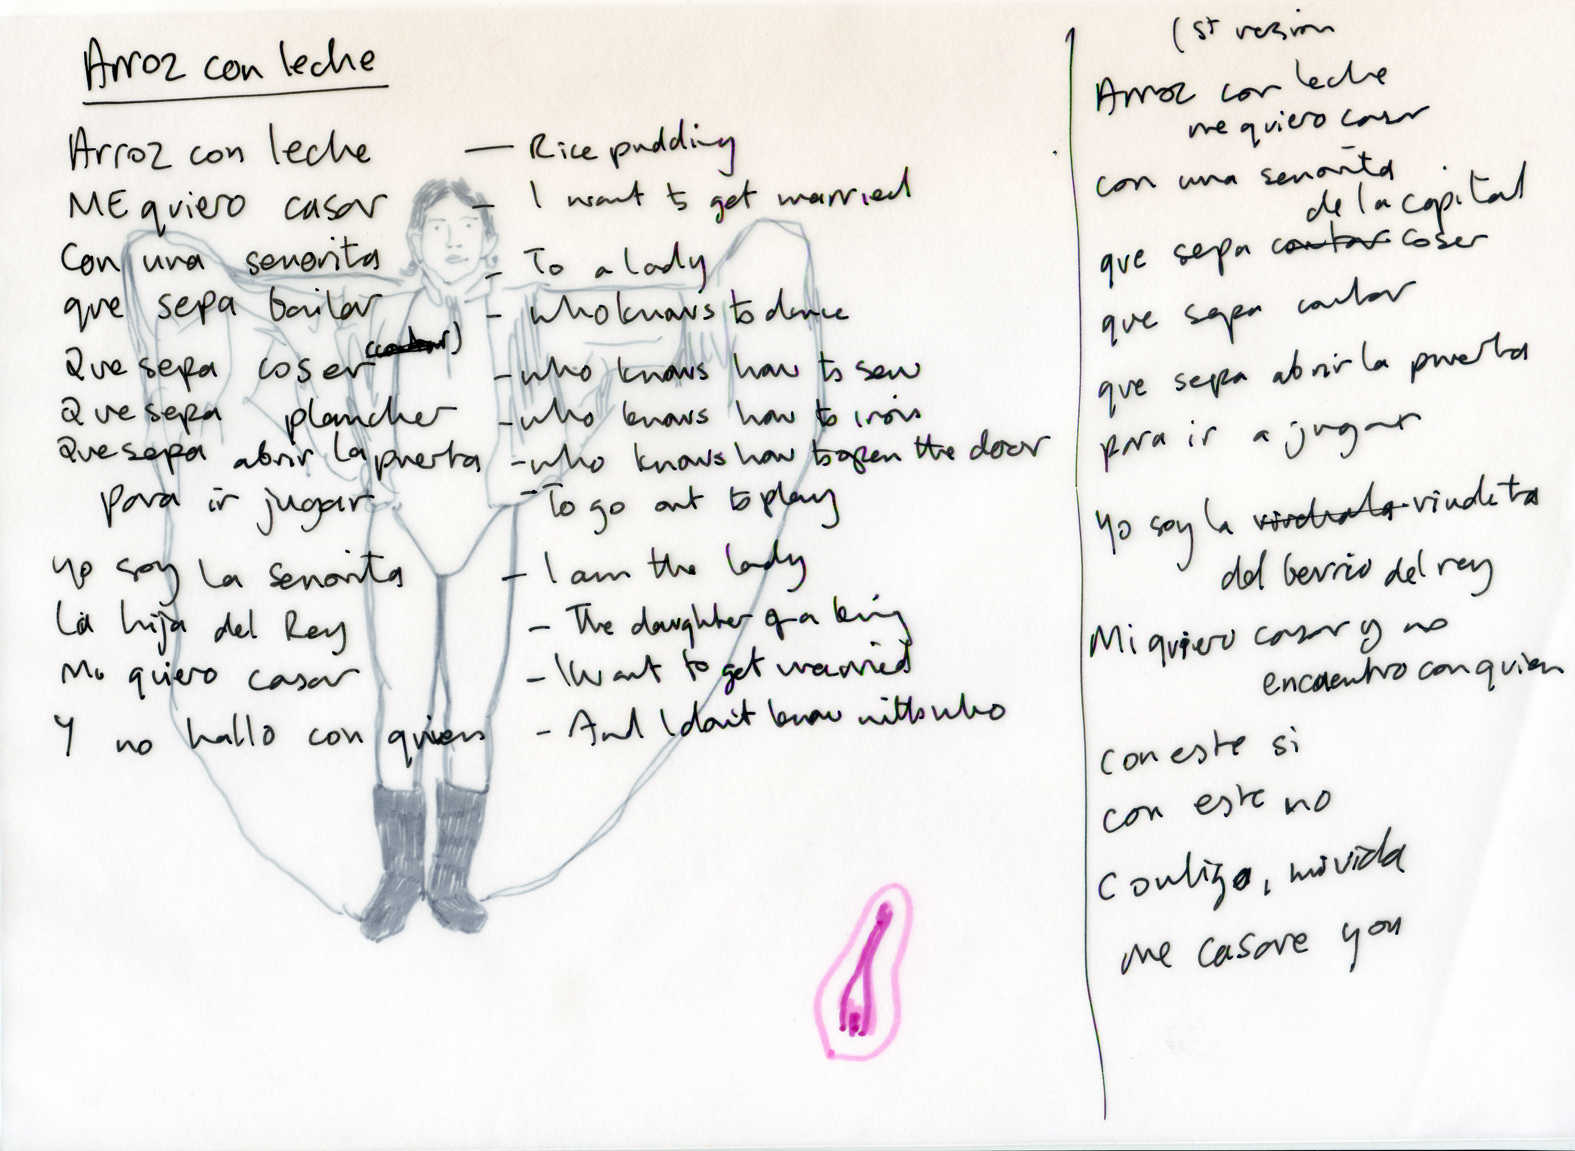 Arroz con leche
Arroz con leche — Rice pudding
ME quiero casar - I want to get married
Con una senorita - To a lady
que sepa bailar - who knows to dance
Que sepa coser - who knows how to sew
Que sepa plancher - who knows how to iron
Que sepa abrir la puerta - who knows how to open the door
para ir jugar - To go out to play
yo soy la senorita - I am the lady
La hija del Rey - The daughter of a king
Mi quiero casar - I want to get married
Y no hallo con quien - And I don't know with who
1st version
Arroz con leche
me quiero casar
con una senorita
de la capital
que sepa coser
que sepa cantar
que sepa abrir la puerta
para ir a jugar
Yo soy la viudeta
del berrio del rey
Mi quiero casar y no
encuentro con quien
con este si
con este no
Contigo, mi vida
me casare yon